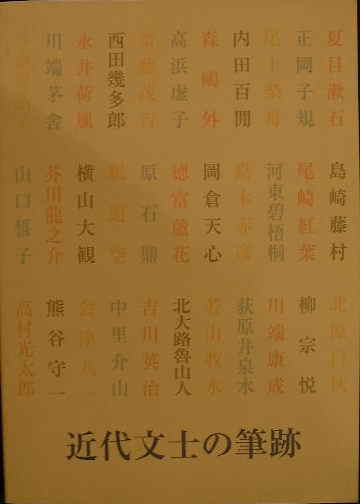 夏目漱石
正岡子規
内田百閒
森鷗外
高浜虚子
斎藤茂吉
西田幾多郎
永井荷風
川端茅舎
島崎藤村
尾崎紅葉
河東碧梧桐
島木赤彦
岡倉天心
徳富蘆花
原石鼎
釈迢空
横山大観
芥川龍之介
山口誓子
北原白秋
柳宗悦
川端康成
荻原井泉水
若山牧水
北大路魯山人
吉川英治
中里介山
会津八一
熊谷守一
高村光太郎
近代文士の筆跡